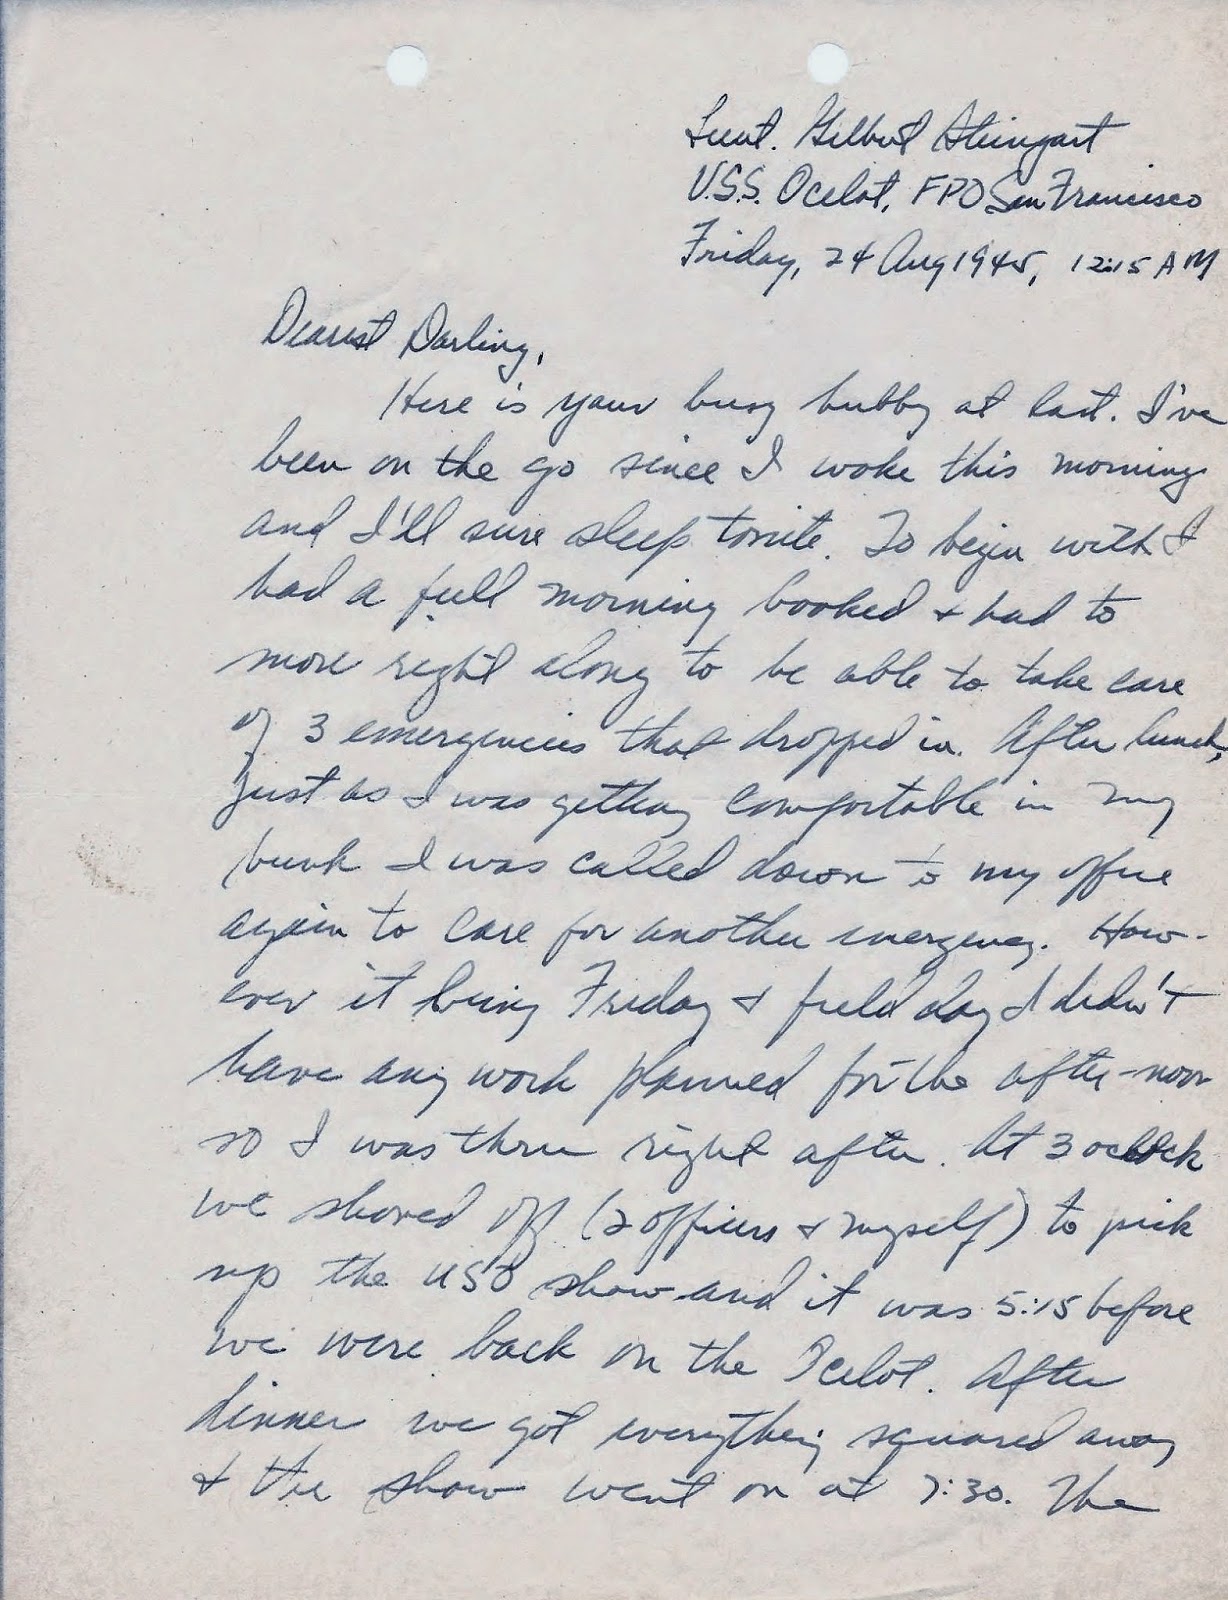 Lieut. Gilbert Steingart
U.S.S. Ocelot, FPO San Francisco
Friday, 24 Aug 1945, 12:15 AM
Dearest Darling,
Here is your busy hubby at last. I've
been on the go since I woke this morning
and I'll sure sleep tonite. To begin with I
had a full morning booked & had to
move right along to be able to take care
of 3 emergencies that dropped in. After lunch,
just as I was getting comfortable in my
bunk I was called down to my office
again to care for another emergency. How-
ever it being Friday & field day I didn't
have any work planned for the after-noon
so I was thru right after. At 3 oclock
we shoved off (2 officers & myself) to pick
up the USO show and it was 5:15 before
we were back on the Ocelot. After
dinner we got everything squared away
& the show went on at 7:30. The